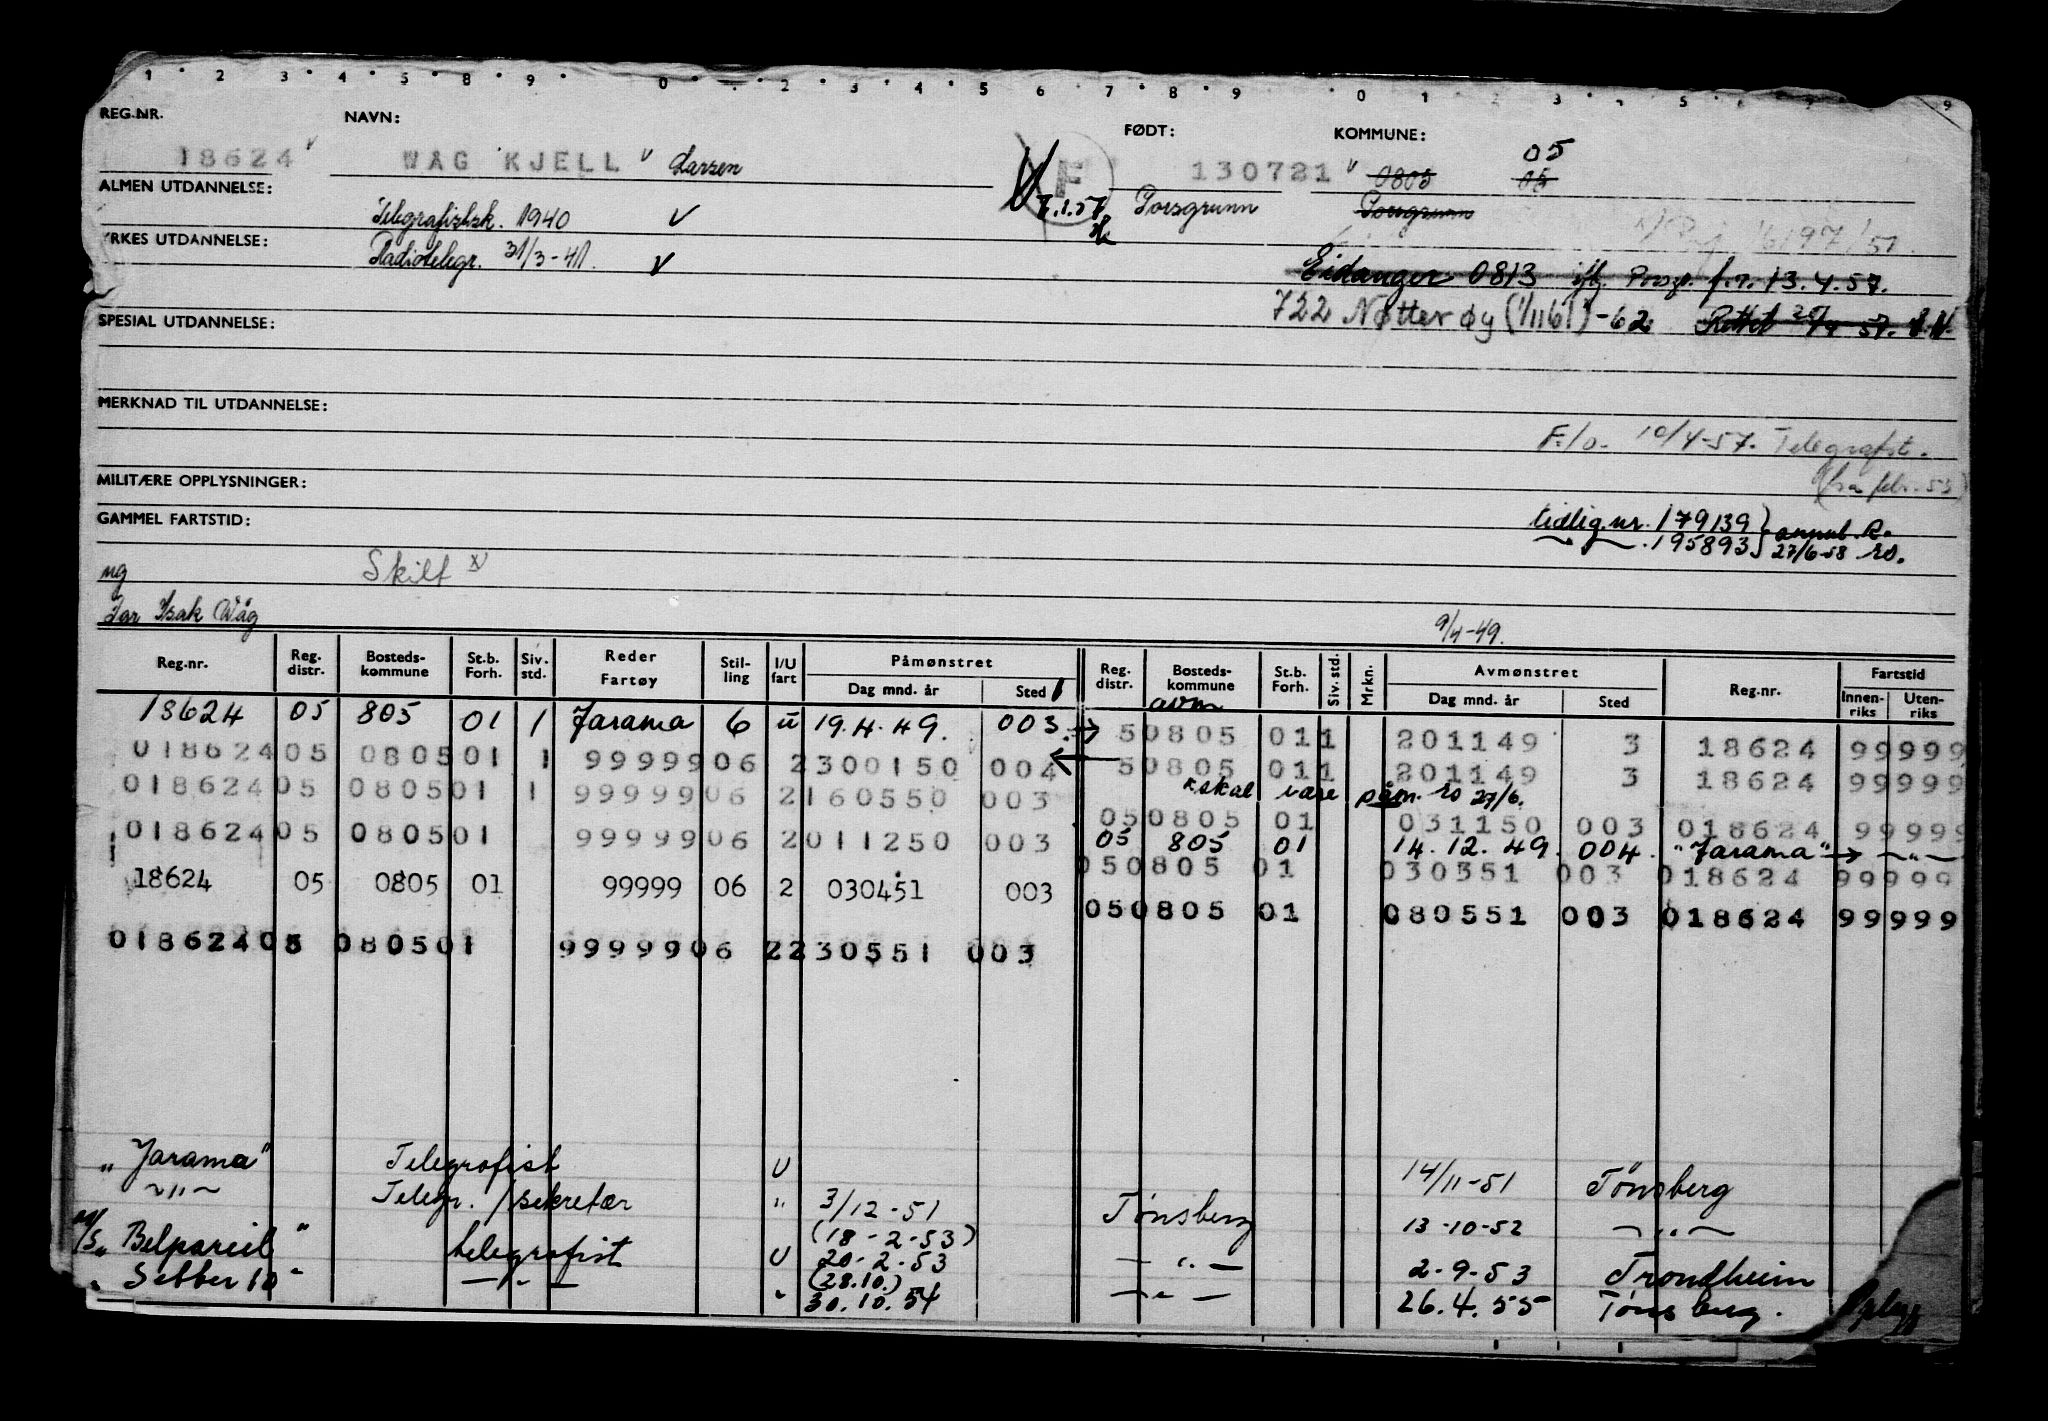 1 2 3 4 5 8 9 0 2 3 4 5 6 7 8 9 0 1 2 3 5 9
REG.NR. NAVN: FØDT: KOMMUNE:
05
18624 WÅG KJELL Larsen F 130721 0805 05
ALMEN UTDANNELSE: Telegrafistsk. 1940 7.1.57 Porsgrunn Porsgrunn
YRKES UTDANNELSE: Radiotelegr. 31/3-41.
Eidanger 0813 Porsgr. f.r. 13.4.57.
722 Nøtterøy (1/1161)-62 Rettet
SPESIAL UTDANNELSE:
MERKNAD TIL UTDANNELSE:
F./o. 10/4-57. Telegrafist.
(fra febr. 53)
MILITÆRE OPPLYSNINGER:
GAMMEL FARTSTID: tidlig. nr. 179139
195893 annul. 27/6-58 ro.
ug Skilt x
Far Isak Wåg
9/4-49.
Reg.nr. Reg. distr. Bosteds- kommune St.b. Forh. Siv. std. Reder Fartøy Stil- ling I/U fart Påmønstret Dag mnd. år Sted Reg. distr. Bosteds- kommune St.b. Forh. Siv. std. Mrkn. Avmønstret Dag mnd. år Sted Reg.nr. Fartstid Innen- riks Uten- riks
avm
18624 05 805 01 1 Jarama 6 u 19.4.49. 003 → 50805 011 201149 3 18624 99999
018624 05 080501 1 9999906 2300150 004 ← 50805 011 201149 3 18624 99999
x skal være påm. ro 27/6.
018624 05 080501 1 9999906 2160550 003 050805 01 031150 003 018624 99999
018624 05 080501 9999906 2011250 003 05 805 01 14.12.49. 004. "Jarama" → —"—
050805 01 030351 003 018624 99999
18624 05 0805 01 99999 06 2 030451 003 050805 01 080551 003 018624 99999
01862405 080501 9999906 2230551 003
"Jarama" Telegrafist U 14/11-51 Tønsberg
—"— Telegr./sekretær " 3/12-51 Tønsberg 13-10-52 —"—
(18-2-53)
M/S "Belpareil" telegrafist U 20-2-53 —"— 2-9-53 Trondheim
(28.10.)
—"— " 30.10.54 —"— 26.4.55 Tønsberg.